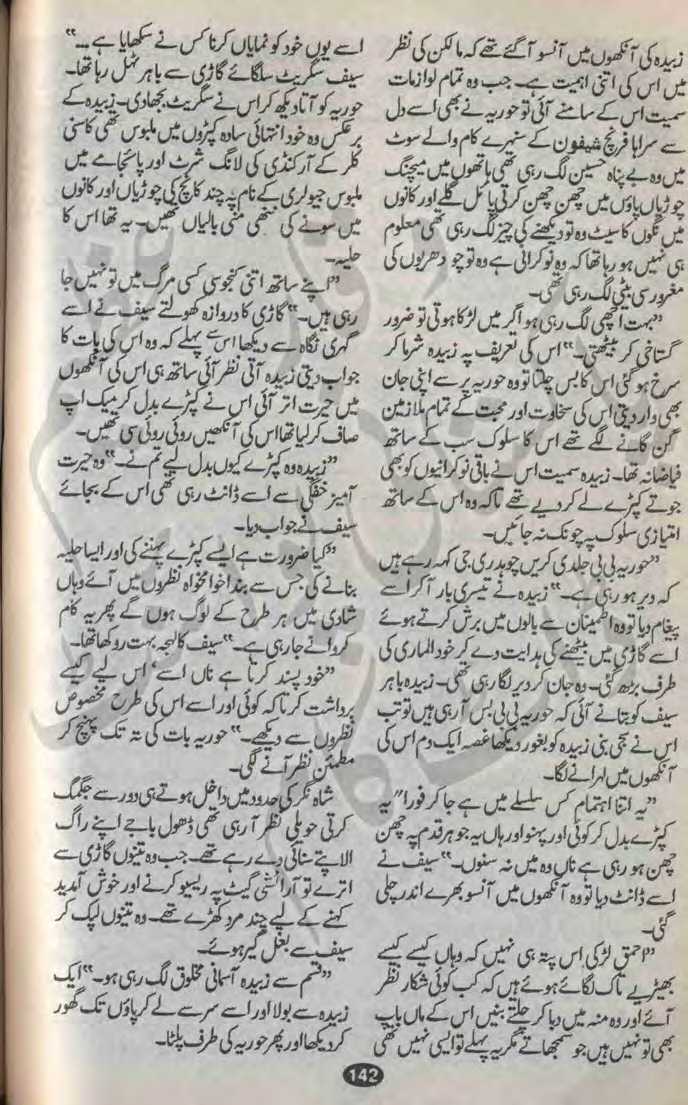 زبیدہ کی آنکھوں میں آنسو آگئے تھے کہ مالکن کی نظر
میں اس کی اتنی اہمیت ہے۔ جب وہ تمام لوازمات
سمیت اس کے سامنے آئی تو حوریہ نے بھی اسے دل
سے سراہا فرنچ شیفون کے سنہرے کام والے سوٹ
میں وہ بے پناہ حسین لگ رہی تھی ہاتھوں میں میچنگ
چوڑیاں پاؤں میں چھن چھن کرتی پائل گلے اور کانوں
میں نگوں کا سیٹ وہ تو دیکھنے کی چیز لگ رہی تھی معلوم
ہی نہیں ہو رہا تھا کہ وہ نوکرانی ہے وہ تو چودھریوں کی
مغرور سی بیٹی لگ رہی تھی۔
”بہت اچھی لگ رہی ہو اگر میں لڑکا ہوتی تو ضرور
گستاخی کر بیٹھتی۔“ اس کی تعریف پہ زبیدہ شرما کر
سرخ ہو گئی اس کا بس چلتا تو وہ حوریہ پر سے اپنی جان
بھی وار دیتی اس کی سخاوت اور محبت کے تمام ملازمین
گن گانے لگے تھے اس کا سلوک سب کے ساتھ
فیاضانہ تھا۔ زبیدہ سمیت اس نے باقی نوکرانیوں کو بھی
جوتے کپڑے لے کر دیے تھے تاکہ وہ اس کے ساتھ
امتیازی سلوک پہ چونک نہ جائیں۔
”حوریہ بی بی جلدی کریں چوہدری جی کہہ رہے ہیں
کہ دیر ہو رہی ہے۔“ زبیدہ نے تیسری بار آکر اسے
پیغام دیا تو وہ اطمینان سے بالوں میں برش کرتے ہوئے
اسے گاڑی میں بیٹھنے کی ہدایت دے کر خود الماری کی
طرف بڑھ گئی۔ وہ جان کر دیر لگا رہی تھی۔ زبیدہ باہر
سیف کو بتانے آئی کہ حوریہ بی بی بس آرہی ہیں تو تب
اس نے سجی بنی زبیدہ کو بغور دیکھا غصہ ایک دم اس کی
آنکھوں میں لہرانے لگا۔
”یہ اتنا اہتمام کس سلسلے میں ہے جا کر فورا“ یہ
کپڑے بدل کر کوئی اور پہنو اور ہاں یہ جو ہر قدم پہ چھن
چھن ہو رہی ہے ناں وہ میں نہ سنوں۔“ سیف نے
اسے ڈانٹ دیا تو وہ آنکھوں میں آنسو بھرے اندر چلی
گئی۔
”احمق لڑکی اس پتہ ہی نہیں کہ وہاں کیسے کیسے
بھیڑیے تاک لگائے ہوئے ہیں کہ کب کوئی شکار نظر
آئے اور وہ منہ میں دبا کر چلتے بنیں اس کے ماں باپ
بھی تو نہیں ہیں جو سمجھاتے مگر یہ پہلے تو ایسی نہیں تھی
اسے یوں خود کو نمایاں کرنا کس نے سکھایا ہے۔۔۔“
سیف سگریٹ سلگائے گاڑی سے باہر ٹہل رہا تھا۔
حوریہ کو آتا دیکھ کر اس نے سگریٹ بجھا دی۔ زبیدہ کے
برعکس وہ خود انتہائی سادہ کپڑوں میں ملبوس تھی کاسنی
کلر کے آرکنڈی کی لانگ شرٹ اور پائجامے میں
ملبوس جیولری کے نام پہ چند کانچ کی چوڑیاں اور کانوں
میں سونے کی ننھی منی بالیاں تھیں۔ یہ تھا اس کا
حلیہ۔
”اپنے ساتھ اتنی کنجوسی کسی مرگ میں تو نہیں جا
رہی ہیں۔“ گاڑی کا دروازہ کھولتے سیف نے اسے
گہری نگاہ سے دیکھا اس سے پہلے کہ وہ اس کی بات کا
جواب دیتی زبیدہ آتی نظر آئی ساتھ ہی اس کی آنکھوں
میں حیرت اتر آئی اس نے کپڑے بدل کر میک اپ
صاف کر لیا تھا اس کی آنکھیں روئی روئی سی تھیں۔
”زبیدہ وہ کپڑے کیوں بدل لیے تم نے۔“ وہ حیرت
آمیز خفگی سے اسے ڈانٹ رہی تھی اس کے بجائے
سیف نے جواب دیا۔
”کیا ضرورت ہے ایسے کپڑے پہننے کی اور ایسا حلیہ
بنانے کی جس سے بندا خوامخواہ نظروں میں آئے وہاں
شادی میں ہر طرح کے لوگ ہوں گے پھر یہ کام
کروانے جا رہی ہے۔“ سیف کا لہجہ بہت روکھا تھا۔
”خود پسند کرتا ہے ناں اسے اس لیے کیسے
برداشت کرتا کہ کوئی اور اسے اس کی طرح مخصوص
نظروں سے دیکھے۔“ حوریہ بات کی تہ تک پہنچ کر
مطمئن نظر آنے لگی۔
شاہ نگر کی حدود میں داخل ہوتے ہی دور سے جگمگ
کرتی حویلی نظر آرہی تھی ڈھول باجے اپنے راگ
الاپتے سنائی دے رہے تھے۔ جب وہ تینوں گاڑی سے
اترے تو آرائشی گیٹ پہ ریسیو کرنے اور خوش آمدید
کہنے کے لیے چند مرد کھڑے تھے۔ وہ تینوں لپک کر
سیف سے بغل گیر ہوئے۔
”قسم سے زبیدہ آسمانی مخلوق لگ رہی ہو۔“ ایک
زبیدہ سے بولا اور اسے سر سے لے کر پاؤں تک گھور
کر دیکھا اور پھر حوریہ کی طرف پلٹا۔
142